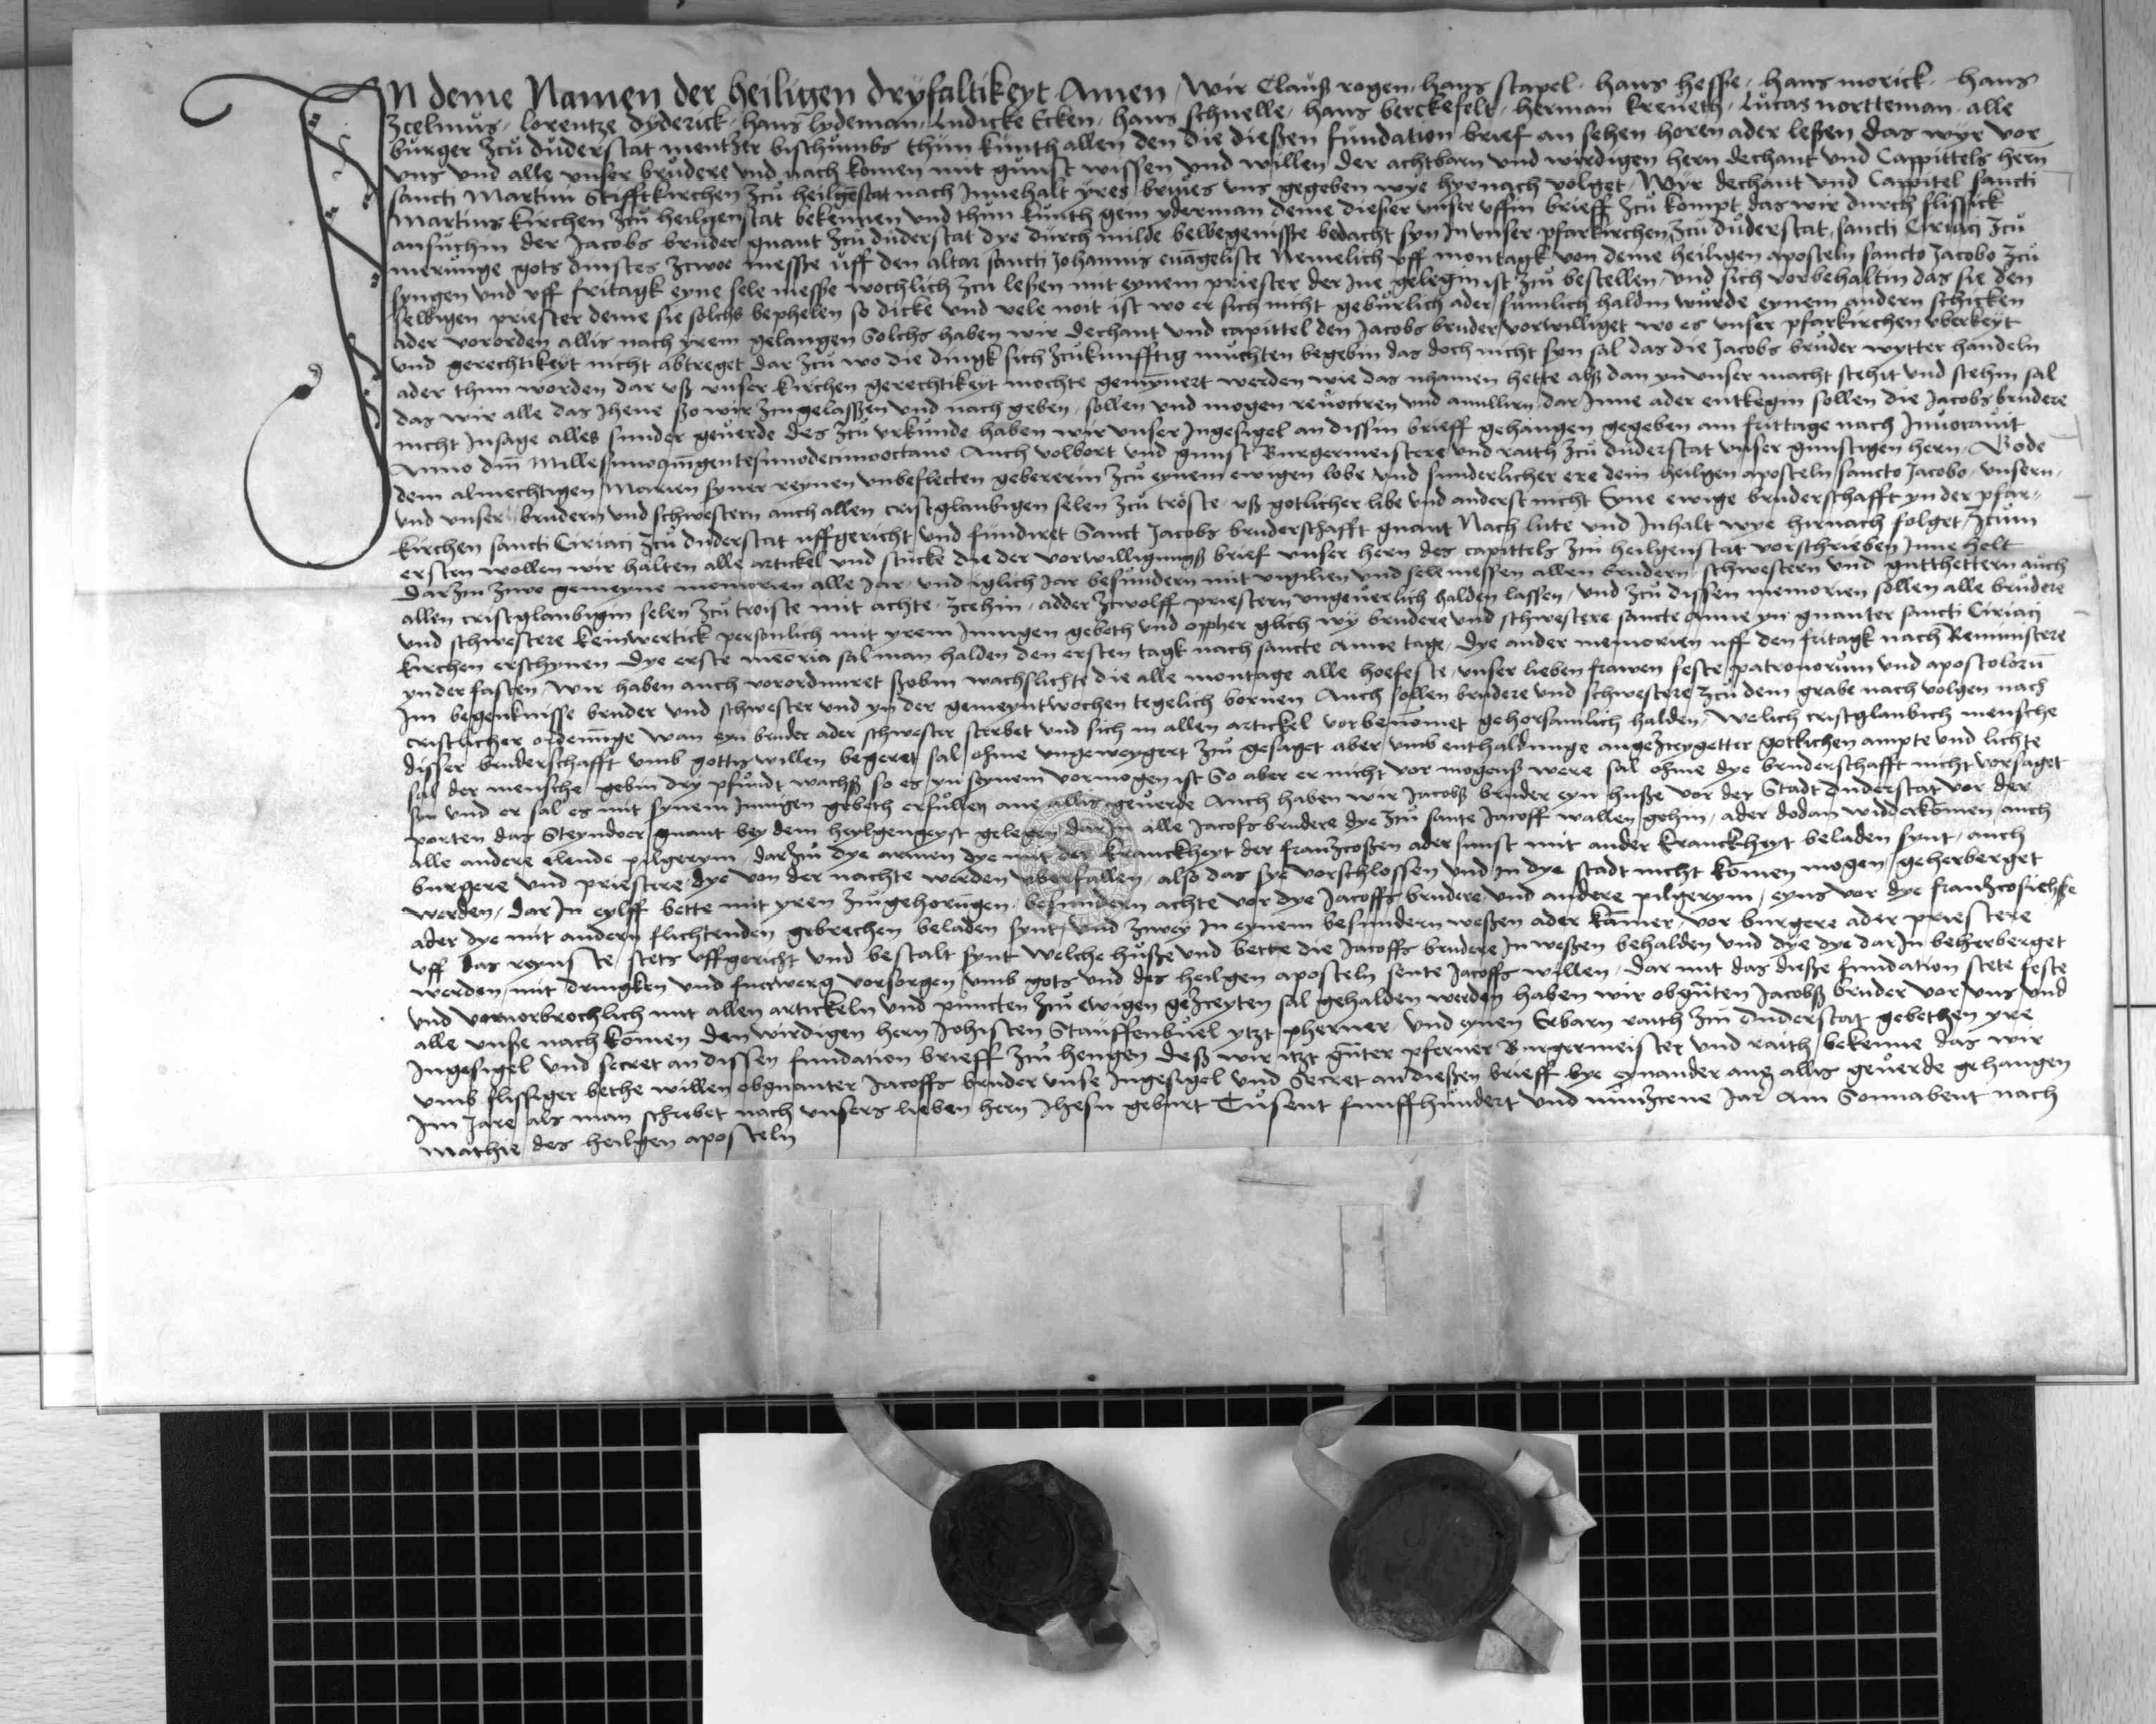 In deme Namen der heiligen dryfaltikeyt Amen Wir Clauß rogen, hans stapel, hans hesse, hans morick, hans
Zcelmüs, Lorentze dyderick, hans lydeman, Ludicke Ecken, hans schnelle, hans berckefelt, herman kreueth, Lucas nortteman, alle
burger zcu duderstat mentzer bischumbs thun kunth allen den die dießen fundation brief an sehen horen ader leßen das wyr vor
uns und alle unser brudere und nach komen mit gunst wissen und willen der achtbarn und wirdigen hern dechant und Cappittels hern
sancti Martini Stifftkirchen zcu heilgestat nach Innehalt yres brives uns gegeben wye hyrnach volget, Wyr dechant und Cappitel sancti
Martins kirchen zcu heilgenstat bekennen und thun kunth gem yderman deme dießer unser uffin brieff zcu kompt das wir durch flissick
ansuchin der Jacobs bruder gnant zcu duderstat dye durch milde bewegenisse bedacht syn In unser pfarkirchen zcu duderstat sancti Ciriaci zcu
merunge gots dinstes zcwoe messe uff den altar sancti Johannis evangeliste Nemelich uff montagk von deme heiligen aposteln sancto Jacobo zcu
syngen und uff fritagk eyne sele messe wochlich zcu leßen mit eynem priester der Ine gelegin ist zcu bestellen, und sich vorbehaltin das sie den
selbigen priester deme sie solchs bephelen so dicke und vele noit ist wo er sich nicht geburlich ader sumlich haldin wurde eynem andern schicken
ader vororden allis nach yrem gelangen Solchs haben wir dechant und capittel den Jacobs bruder vorwilliget wo es unser pfarkirchen uberkeyt
und gerechtikeyt nicht abtreget dar zcu wo die dingk sich zcukunfftig muchten begebin das doch nicht syn sal das die Jacobs bruder wytter handeln
ader thun worden dar uß unser kirchen gerechtikeyt mochte gemynert werden wie das nhamen hette alß dan yn unser macht stehit und stehin sal
das wir alle das Jhene ßo wir zcugelassen und nach geben, sollen und mogen revociren und anullirn, dar Inne ader entkegin sollen die Jacobs brudere
nicht Insage alles sunder geverde des zcu urkunde haben wir unser Ingesigel an dissin brieff gehangen gegeben am frittage nach Invocavit
Anno dni Millesimoquingentesimodecimooctavo Auch volbort und gunst Burgermeistere und raith zcu duderstat unser gunstigen hern, Gode
dem almechtigen Marien syner reynen unbeflecten gebererin zcu eynem ewigen lobe und sunderlicher ere dem heilgen aposteln sancto Jacobo, unsern,
und unser brudern und schwestern auch allen cristglaubigen selen zcu troste uß gotlicher libe und anderst nicht Eyne ewige bruderschafft yn der pfar-
kirchen sancti Ciriaci zcu duderstat uffgericht und fundiret Sanct Jacobs bruderschafft gnant Nach lute und Inhalt wye hirnach folget, Zcum
ersten wollen wir halten alle artickel und stucke die der vorwilligungß brief unser hern des capittels zcu heilgenstat vorschrieben Inne helt
Dar zcu zwe gemeyne memorien alle Jar und iglich Jar besundern mit vigilien und selemessen allen brudern schwestern und gutthettern auch
allen cristglaubigin selen zcu troiste mit achte, zcehin, adder zcwolff priestern ungeverlich halden lassen, und zcu dissen memorien sollen alle brudere
und schwestere keinwertick personlich mit yrem Innigen gebeth und opher glich wy brudere und schwestere sancte Anne yn gnanter sancti Ciriaci
kirchen erschynen Dye erste meoria sal man halden den ersten tagk nach sancte Anne tage, Dye ander memorien uff den fritagk nach Reminiscere
yn der fasten, Wir haben auch vorordniret ßobin wachslichte die alle montage alle hoefeste, unser lieben frawen feste patronorum und apostolorum
Im begenknisse bruder und schwester und yn der gemeyntwochen tegelich bornen Auch sollen brudere und schwestere zcu dem grabe nach volgen nach
cristlicher ordenunge wan eyn bruder ader schwester sterbet und sich in allen artickel vorbenomet gehorsamlich halden, Welich cristglaubich mensche
disser bruderschafft umb gottis willen begeret sal ohme ungeweygert zcu gesaget aber umb enthaldunge angezceygetter gotlichen ampte und lichte
sal der mensche gebin dry pfundt wachß so es yn seynem vormogen ist So aber er nicht vor mogenß were sal ohme dye bruderschafft nicht vorsaget
syn und er sal es mit synem Innigen gebeth erfullen ane allis geverde Auch haben wir Jacobß bruder eyn hußе vor der Stadt duderstat vor der
porten das Steyndoer gnant bey dem heylgengeyst gelegen dar In alle Jacofs brudere dye zcu sante Jacoff wallen gehin, ader dodan widderkomen, auch
alle andere elende pilgerym, dar zcu dye armen dye mit der kranckheyt der franzcoßen ader sunst mit ander kranckheyt beladen synt, auch
burgere und priestere dye von der nachte werden uberfallen, also das sye vorschlossen und in dye stadt nicht komen mogen, geherberget
werden, dar In eylff bette mit yren zcugehorugen, besundern achte vor dye Jacoffs brudere und andere pilgerym, eyns vor dye
ader dye mit andern flichtenden gebrechen beladen synt, und zwey In eynem besundern weßen ader kamer, vor burgere ader priestere
uff das reynste stets uffgericht und bestalt synt Welche hußе und bette die Jacoffs brudere In weßen behalden und dye dye dar In beherberget
werden mit dringken und fuerwerg vorsorgen umb gots und des heilgen aposteln sente Jacoffs willen, Dar mit das dieße fundation stete feste
und unvorbrochlich mit allen artickeln und puncten zcu ewigen gezceyten sal gehalden werden haben wir obgnten Jacobß bruder vor uns und
alle unße nach komen den wirdigen hern Stauffenbuel ytzt pherner, und eynen Erbarn raith zcu duderstat gebethen yre
Ingesigel und secret an dissen fundation brieff zcu hengen Deß wir itzt gnter pferner Burgermeister und raith bekenne das wir
umb flissiger bethe willen obgnanter Jacoffs bruder unse Ingesigel und Secret an dießen brieff bye eynander ane allis geverde gehangen
Im Jare als man schribet nach unsers lieben hern Jhesu geburt Tusent funffhundert und nunzcene Jar Am Sonnabent nach
Mathie des heilgen aposteln